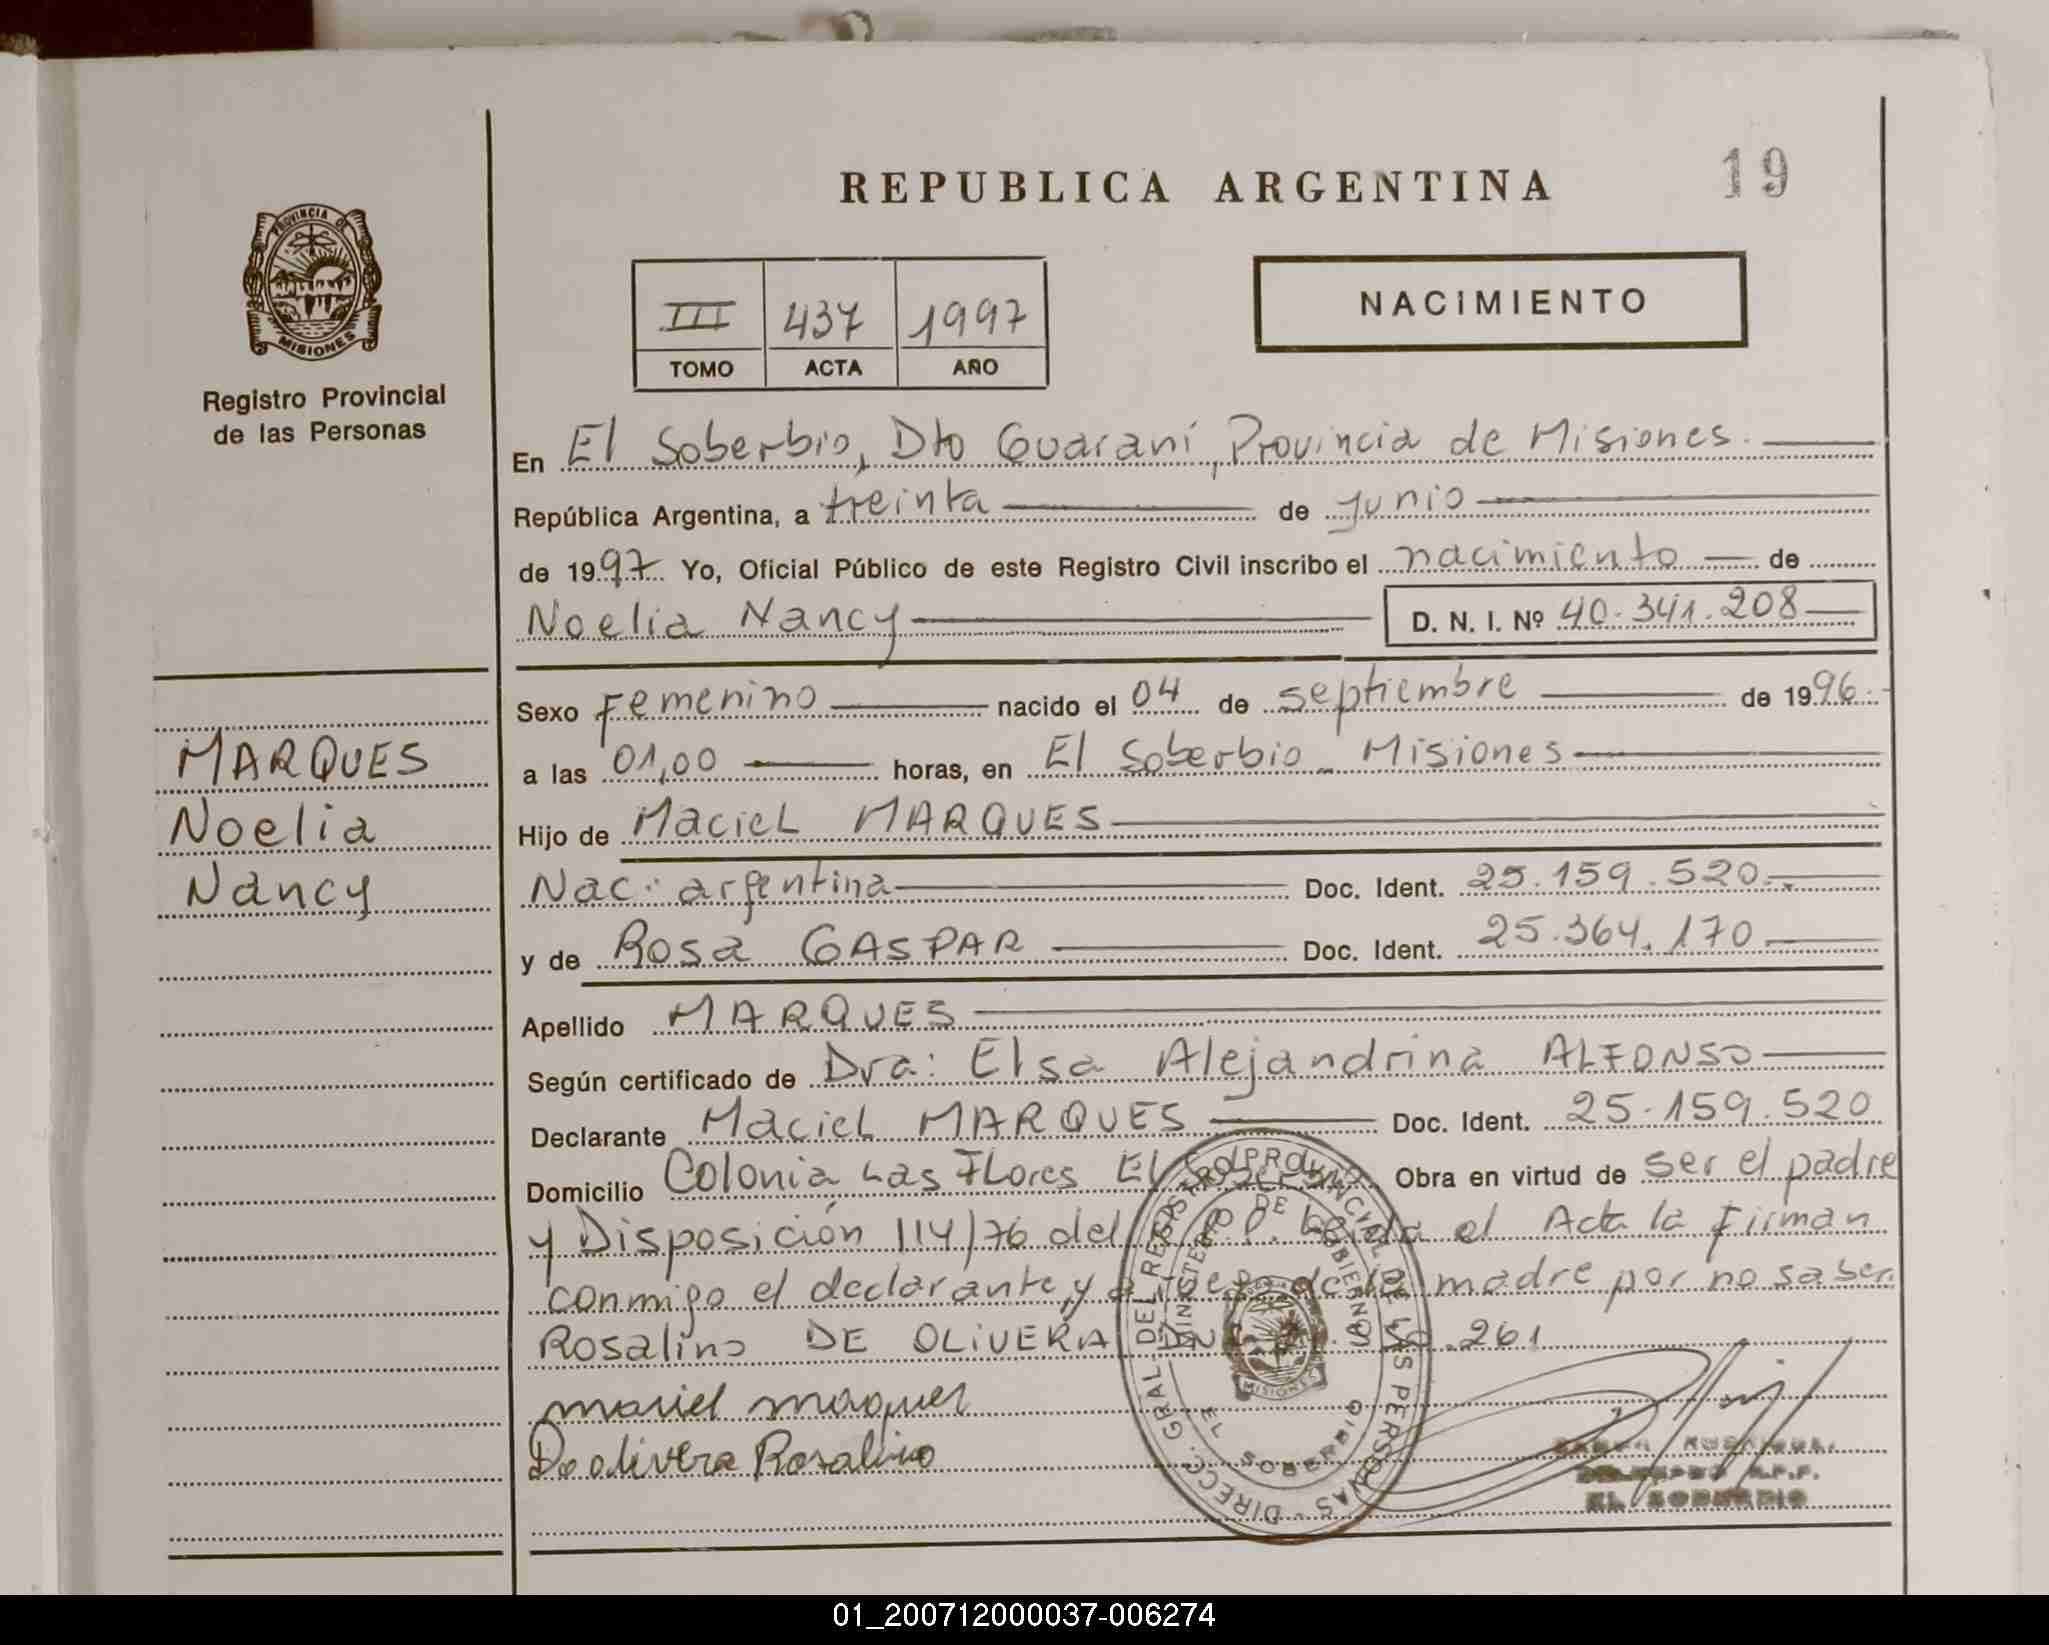 REPUBLICA ARGENTINA
19
PROVINCIA DE
MISIONES
Registro Provincial
de las Personas
III 437 1997
TOMO ACTA AÑO
NACIMIENTO
En El Soberbio, Dto Guaraní, Provincia de Misiones.
República Argentina, a treinta de junio
de 1997 Yo, Oficial Público de este Registro Civil inscribo el nacimiento de
Noelia Nancy D. N. I. Nº 40.341.208
Sexo Femenino nacido el 04 de septiembre de 1996.
a las 01,00 horas, en El Soberbio - Misiones
Hijo de Maciel MARQUES
Nac: argentina Doc. Ident. 25.159.520.
y de Rosa GASPAR Doc. Ident. 25.364.170
Apellido MARQUES
Según certificado de Dra: Elsa Alejandrina ALFONSO
Declarante Maciel MARQUES Doc. Ident. 25.159.520
Domicilio Colonia Las Flores El Obra en virtud de ser el padre
y Disposición 114/76 del el Acta la firman
conmigo el declarante, y a ruego de la madre por no saber
Rosalino DE OLIVERA .261
maciel marques
De olivera Rosalino
MARQUES
Noelia
Nancy
DIRECC. GRAL. DEL REGISTRO PROVINCIAL DE LAS PERSONAS
MINISTERIO DE GOBIERNO
MISIONES
EL SOBERBIO
EL SOBERBIO
01_200712000037-006274